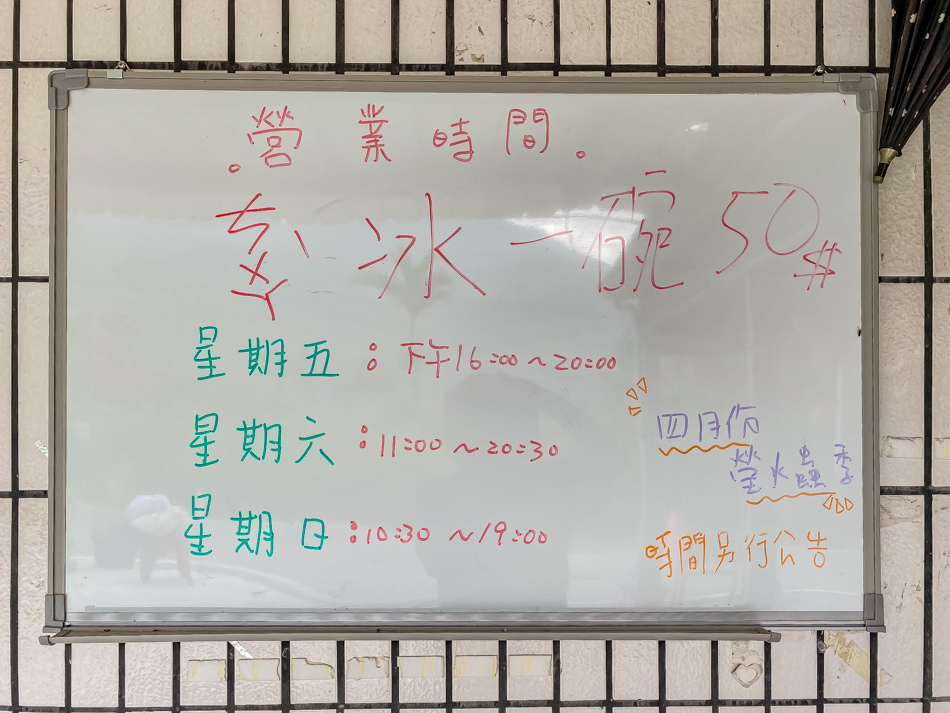 。營業時間。
ㄘㄨㄚˋ冰一碗50$
星期五：下午16:00~20:00
星期六：11:00~20:30
星期日：10:30~19:00
四月份
螢火蟲季
時間另行公告